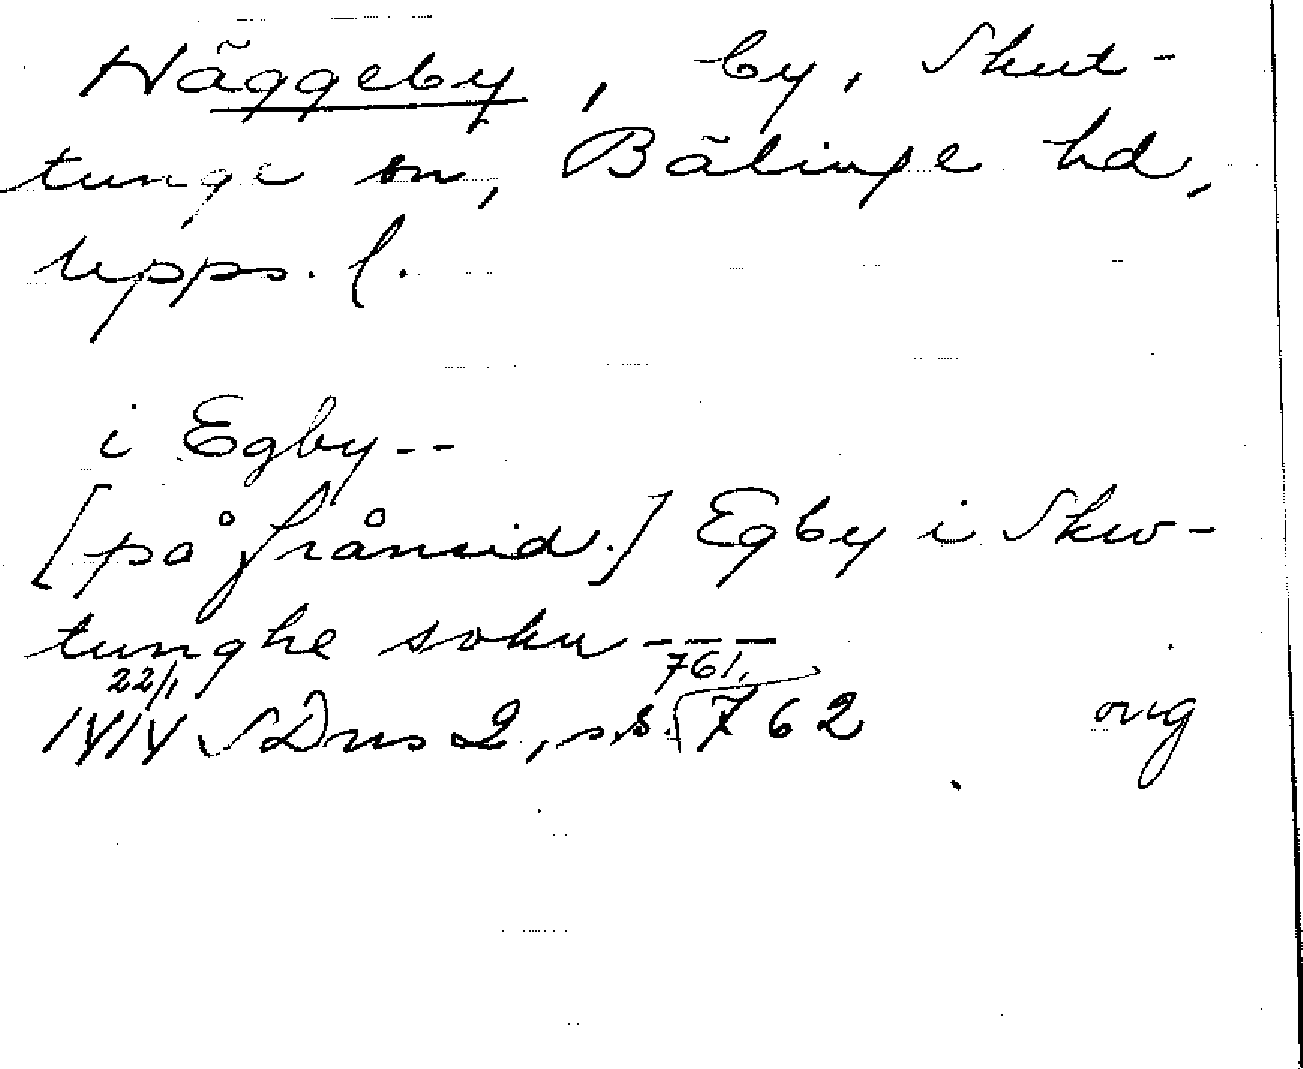 Häggeby, by, Skut-
tunge sn, Bälinge hd,
Upps. l.
i Egby--
[på frånsid.] Egby i Skw-
tunghe sokn ---
22/1 761,
1414 SDns 2, s.s. 762 orig